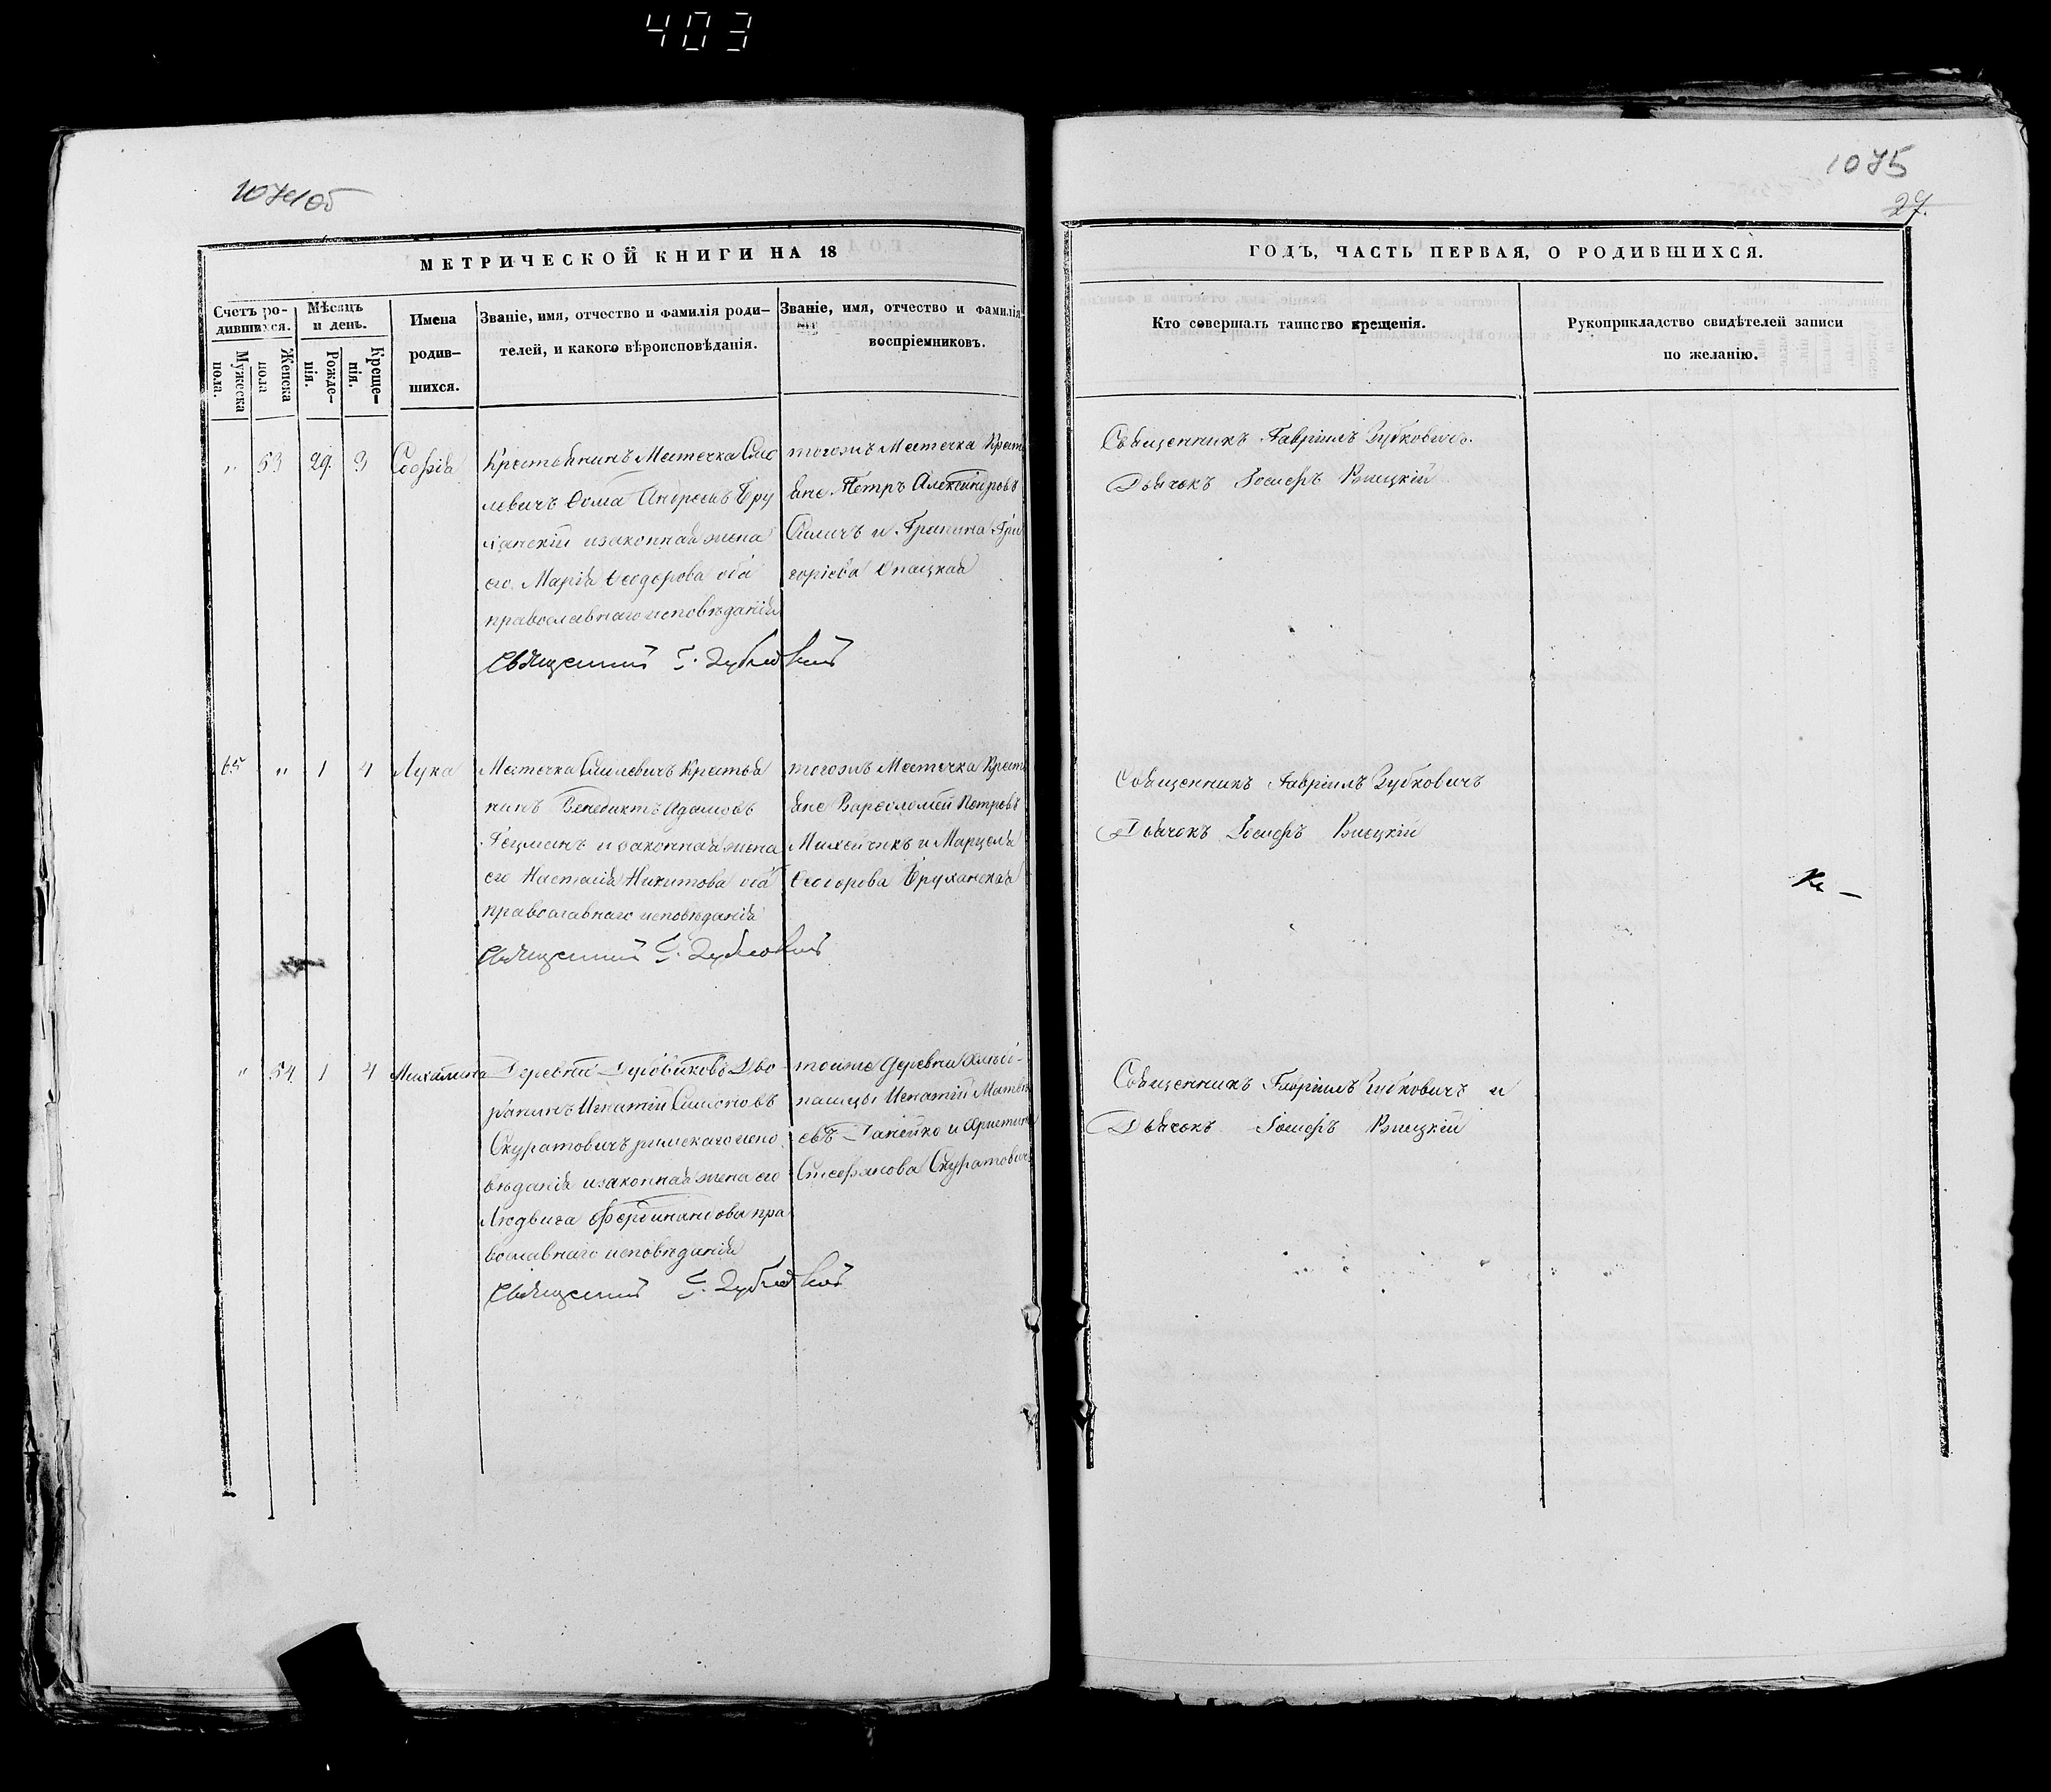 403
1074об
1075
27.
МЕТРИЧЕСКОЙ КНИГИ НА 18
ГОДЪ, ЧАСТЬ ПЕРВАЯ, О РОДИВШИХСЯ.
Счетъ ро-
дившихся.
Мужеска
пола.
Женска
пола
Мѣсяцъ
и день.
Рожде-
нія.
Креще-
нія.
Имена
родив-
шихся.
Званіе, имя, отчество и фамилія роди-
телей, и какого вѣроисповѣданія.
Званіе, имя, отчество и фамилія
воспріемниковъ.
Кто совершалъ таинство крещенія.
Рукоприкладство свидѣтелей записи
по желанію.
" 53 29. 3 Софія
Крестьянинъ Местечка Смо
левичъ Ѳома Андреевъ Бру
ханскій и законная жена
его Марія Ѳеодорова оба
православнаго исповѣданія
Священникъ Г. Зубковичъ
тогожъ Местечка Крест
яне Петръ Александровъ
и Грипина Гри
горіева
Священникъ Гавріилъ Зубковичъ.
Дьячокъ Іосифъ
65 " 1 4 Лука
Местечка Смолевичъ Крестья
нинъ Венедиктъ Адамовъ
Гецманъ и законная жена
его Настасія Никитова оба
православнаго исповѣданія
Священникъ Г. Зубковичъ
тогожъ Местечка Крест
яне Варѳоломей Петровъ
Михейчикъ и Марцеля
Ѳеодорова Бруханская
Священникъ Гавріилъ Зубковичъ
Дьячокъ Іосифъ
" 54. 1 4 Михалина
Деревни Дубовиковъ Дво
рянинъ Игнатій Симоновъ
Скуратовичъ римскаго испо
вѣданія и законная жена его
Людвига Фердинандова пра
вославнаго исповѣданія
Священникъ Г. Зубковичъ
тойже деревни
Игнатій Матве
евъ Данейко и Христина
Скуратовичъ
Священникъ Гавріилъ Зубковичъ и
Дьячокъ Іосифъ